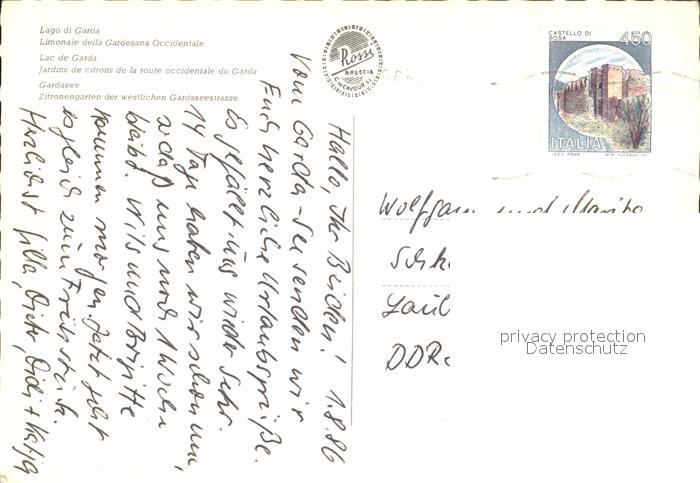 Lago di Garda
Limonaie della Gardesana Occidentale
Lac de Garda
Jardins de citrons de la route occidentale du Garda
Gardasee
Zitronengarten der westlichen Gardaseestrasse
Rossi
BRESCIA
C. CAVOUR
CASTELLO DI
BOSA
450
ITALIA
Hallo, Ihr Beiden! 1.8.86
Vom Garda-See senden wir
Euch herzliche Urlaubsgrüße.
Es gefällt uns wieder sehr.
14 Tage haben wir schon um,
sodaß uns noch 1 Woche
bleibt. Nils und Brigitte
kommen morgen. Jetzt geht
es gleich zum Frühstück.
Herzlichst Gilla, Dieter, Didi + Katja
Wolfgang und
DDR
privacy protection
Datenschutz